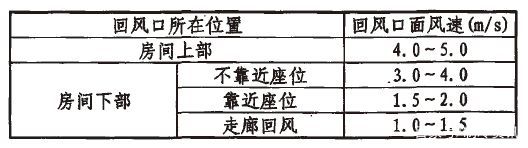 回风口所在位置 回风口面风速(m/s)
房间上部 4.0~5.0
房间下部 不靠近座位 3.0~4.0
靠近座位 1.5~2.0
走廊回风 1.0~1.5